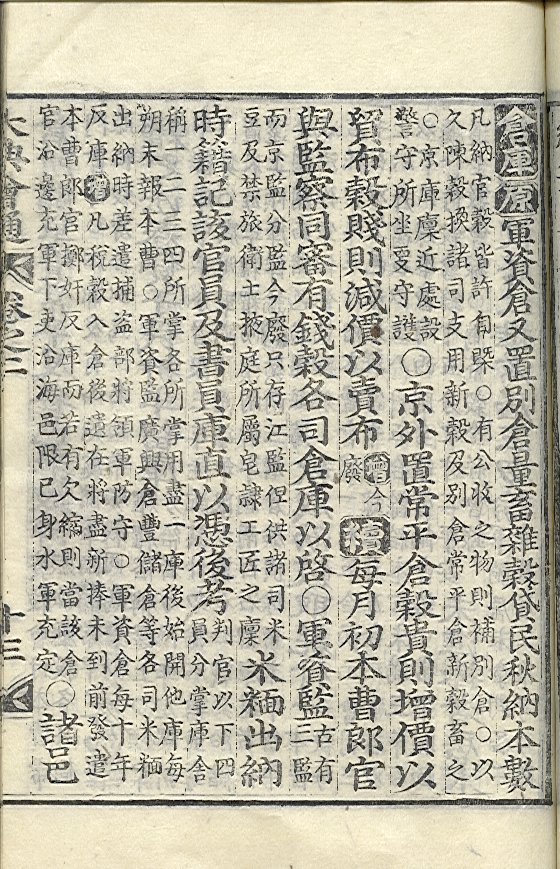 倉庫原軍資倉又置別倉量畜雜穀貸民秋納本數
凡納官穀皆許自槩○有公收之物則補別倉○以
久陳穀換諸司支用新穀及別倉常平倉新穀畜之
○京庫廩近處設
警守所坐更守護○京外置常平倉穀貴則增價以
貿布穀賤則減價以賣布增今
廢續每月初本曹郎官
與監察同審有錢穀各司倉庫以啓○軍資監古有
三監
而京監分監今廢只存江監但供諸司米
豆及禁旅衛士掖庭所屬皂隷工匠之廩米緬出納
時籍記該官員及書員庫直以憑後考判官以下四
員分掌庫舍
稱一二三四所掌各所掌用盡一庫後始開他庫每
朔末報本曹○軍資監廣興倉豐儲倉等各司米緬
出納時差遣捕盜部將領軍防守○軍資倉每十年
反庫增凡稅穀入倉後遺在將盡新捧未到前發遣
本曹郎官擲奸反庫而若有欠縮則當該倉
官沿邊充軍下吏沿海邑限己身水軍充定○諸邑
大典會通 卷之二 十三